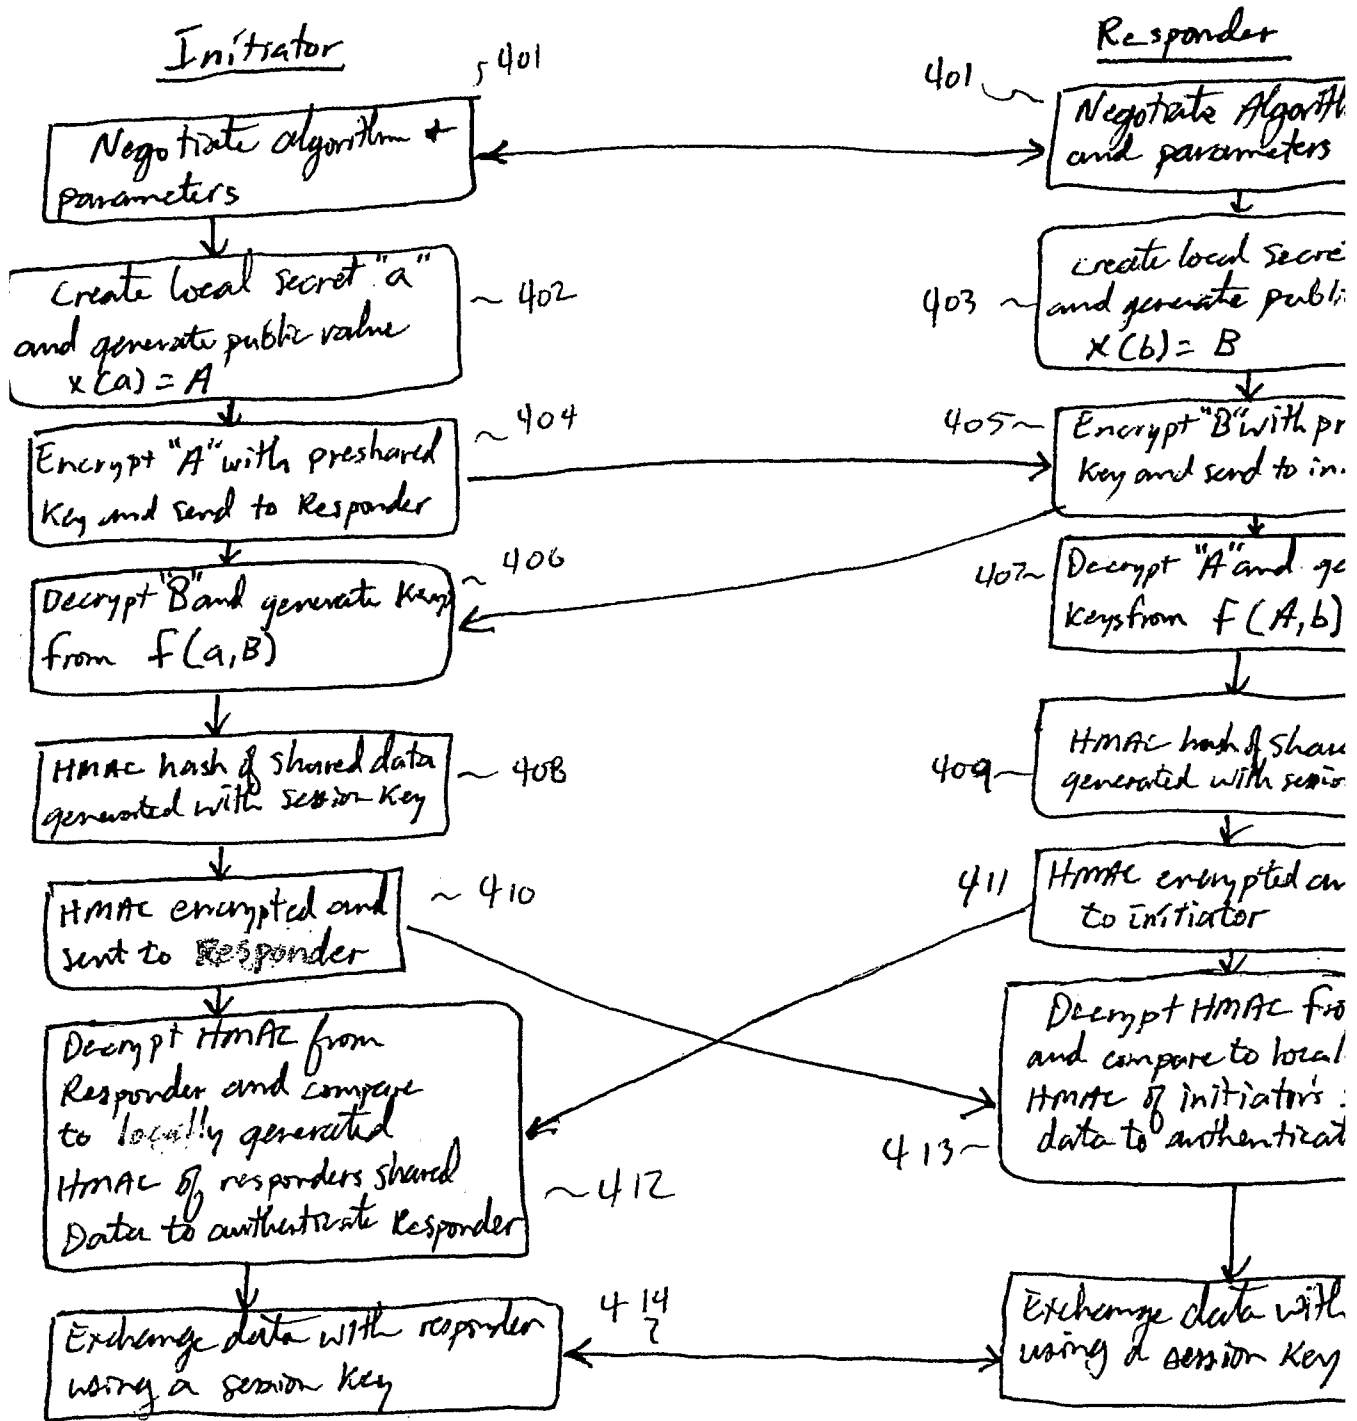 Initiator
401
Negotiate algorithm +
parameters
Create local secret "a"
and generate public value
x(a) = A
402
Encrypt "A" with preshared
Key and send to Responder
404
Decrypt "B" and generate Keys
from f(a,B)
406
HMAC hash of shared data
generated with session Key
408
HMAC encrypted and
sent to Responder
410
Decrypt HMAC from
Responder and compare
to locally generated
HMAC of responders shared
Data to authenticate Responder
412
Exchange data with responder
using a session Key
414
Responder
401
Negotiate Algorith
and parameters
create local secre
and generate publi
x(b) = B
403
Encrypt "B" with pr
Key and send to in
405
Decrypt "A" and ge
Keys from f(A,b)
407
HMAC hash of shar
generated with sessio
409
HMAC encrypted an
to initiator
411
Decrypt HMAC fro
and compare to local
HMAC of initiator's
data to authenticat
413
Exchange data with
using a session Key